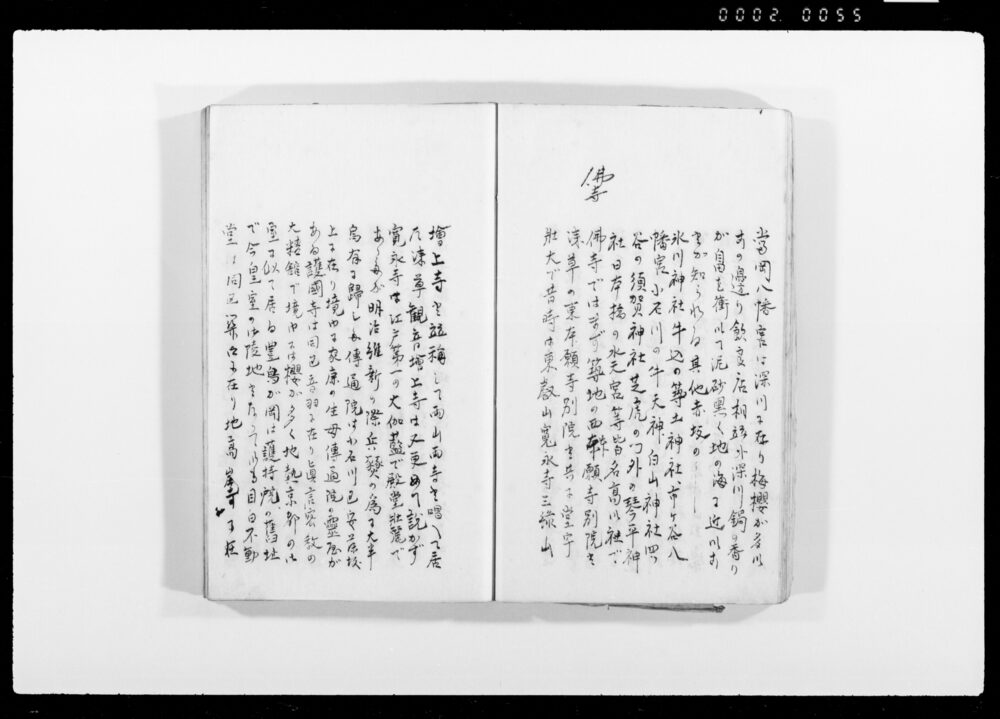 0002 0055
富岡八幡宮は深川に在り梅櫻が多い
すの邊り飲食店相並び深川鍋の香り
が鼻を衝いて泥砂黒く地の海に近いす
とが知られる其他赤坂の
氷川神社牛込の築土神社市ヶ谷八
幡宮小石川の牛天神白山神社四
谷の須賀神社芝虎の門外の琴平神
社日本橋の水天宮等皆名高い社で
佛寺
佛寺ではまず築地の西本願寺別院と
浅草の東本願寺別院と共に堂宇
壮大で昔時は東叡山寛永寺三縁山
増上寺と並稱して両山両寺と唱へて居
た浅草観音増上寺は又更めて説かず
寛永寺は江戸第一の大伽藍で殿堂壮麗で
あったが明治維新の際兵燹の為に大半
烏有に歸した傳通院は小石川区安藤坂
上に在り境内に家康の生母傳通院の靈屋が
ある護國寺は同区音羽に在り真言宗教の
大精舘で境内には櫻が多く地勢京都の
室に似て居る豊島が岡は護持院の舊址
で今皇室の御陵地となって居る目白不動
堂は同区関口に在り地高